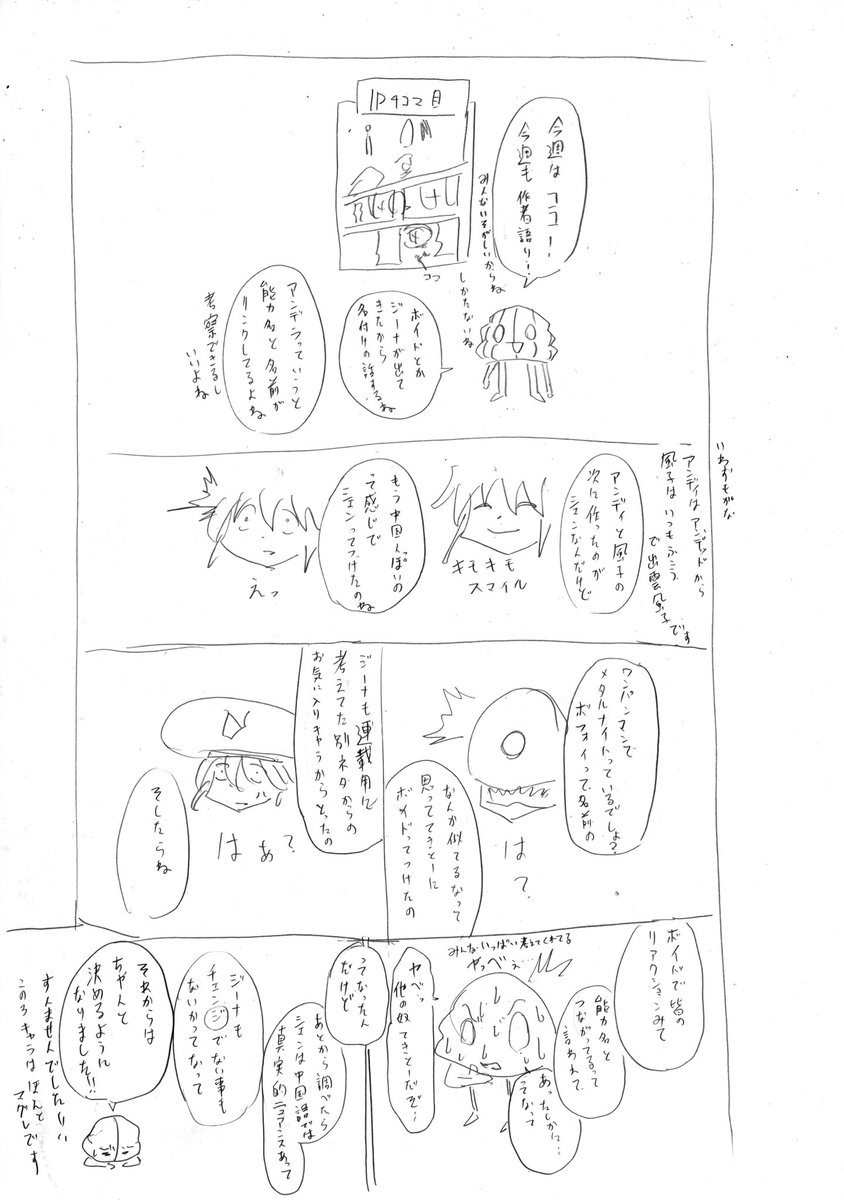 1P4コマ目
ココ
今週はココ！
今週も作者語り！
みんないそがしいからね
しかたないね
ボイドとか
ジーナが出て
きたから
名付けの話するね
アンデラっていうと
能力名と名前が
リンクしてるよね
考察できるし
いいよね
いわずもがな
アンディはアンデッドから
風子はいつもふこう
で出雲風子です
アンディと風子の
次に作ったのが
シェンなんだけど
キモキモ
スマイル
もう中国人っぽいの
って感じで
シェンってつけたのね
えっ
ワンパンマンで
メタルナイトっているでしょ？
ボフォイって名前の
なんか似てるなって
思っててきとーに
ボイドってつけたの
は？
ジーナも連載用に
考えてた別ネタからの
お気に入りキャラからとったの
はぁ？
そしたらね
ボイドで皆の
リアクションみて
能力名と
つながってるって
言われて
みんないっぱい考えてくれてる
やっべぇ…
あったしか!?…
ってなって
ヤベっ
他の奴てきとーだぞ…
ってなったん
だけど
あとから調べたら
シェンは中国語では
真実的ニュアンスあって
ジーナも
チェンジでない事も
ないかってなって
それからは
ちゃんと
決めるように
なりました!!
すんませんでした!!
この3キャラはほんと
マグレです